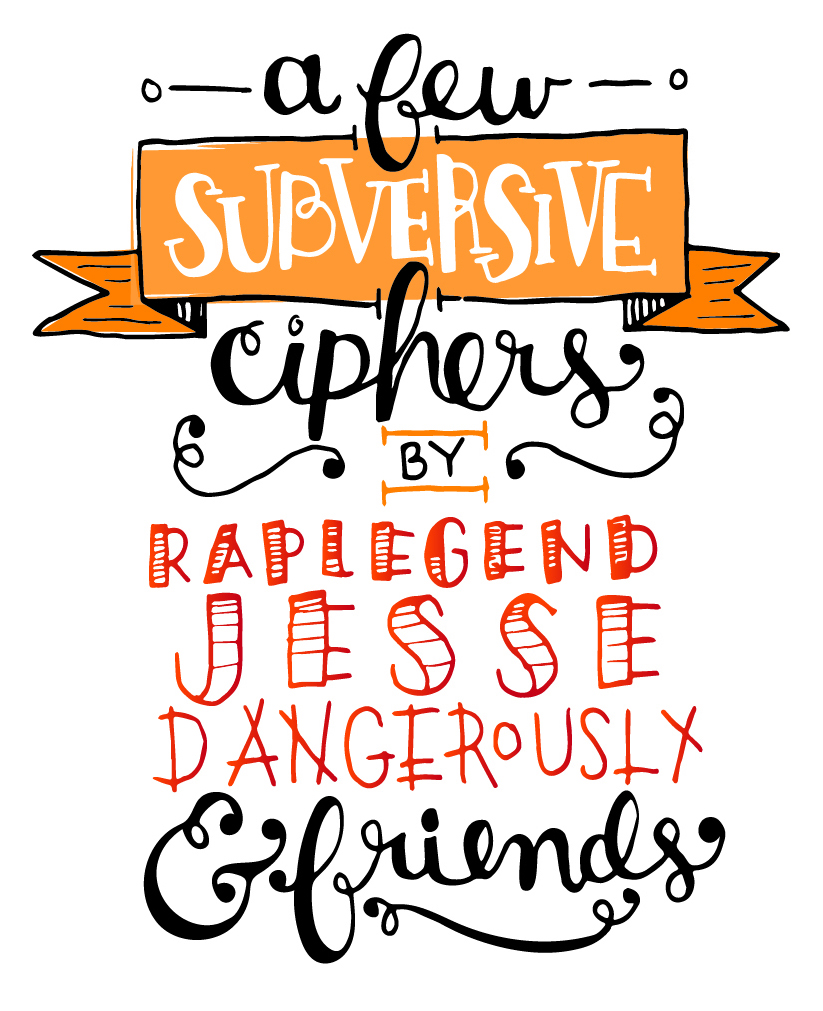 a few
SUBVERSIVE
ciphers
BY
RAPLEGEND
JESSE
DANGEROUSLY
& friends